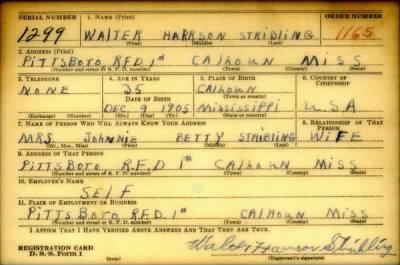 SERIAL NUMBER 1. NAME (Print) ORDER NUMBER
1299 WALTER HARRSON STRIBLING 1165
(First) (Middle) (Last)
2. ADDRESS (Print)
PITTSBORO R.F.D. 1st CALHOUN MISS
(Number and street or R. F. D. number) (Town) (County) (State)
3. TELEPHONE 4. AGE IN YEARS 5. PLACE OF BIRTH 6. COUNTRY OF CITIZENSHIP
NONE 35 CALHOUN
DATE OF BIRTH (Town or county)
DEC. 9 1905 MISSISSIPPI U.S.A
(Exchange) (Number) (Mo.) (Day) (Yr.) (State or country)
7. NAME OF PERSON WHO WILL ALWAYS KNOW YOUR ADDRESS 8. RELATIONSHIP OF THAT PERSON
MRS JOHNNIE BETTY STRIBLING WIFE
(Mr., Mrs., Miss) (First) (Middle) (Last)
9. ADDRESS OF THAT PERSON
PITTSBORO R.F.D. 1st CALHOUN MISS
(Number and street or R. F. D. number) (Town) (County) (State)
10. EMPLOYER'S NAME
SELF
11. PLACE OF EMPLOYMENT OR BUSINESS
PITTSBORO R.F.D. 1st CALHOUN MISS
(Number and street or R. F. D. number) (Town) (County) (State)
I AFFIRM THAT I HAVE VERIFIED ABOVE ANSWERS AND THAT THEY ARE TRUE.
REGISTRATION CARD
D. S. S. Form 1
Walter Harrson Stribling
(Registrant's signature)